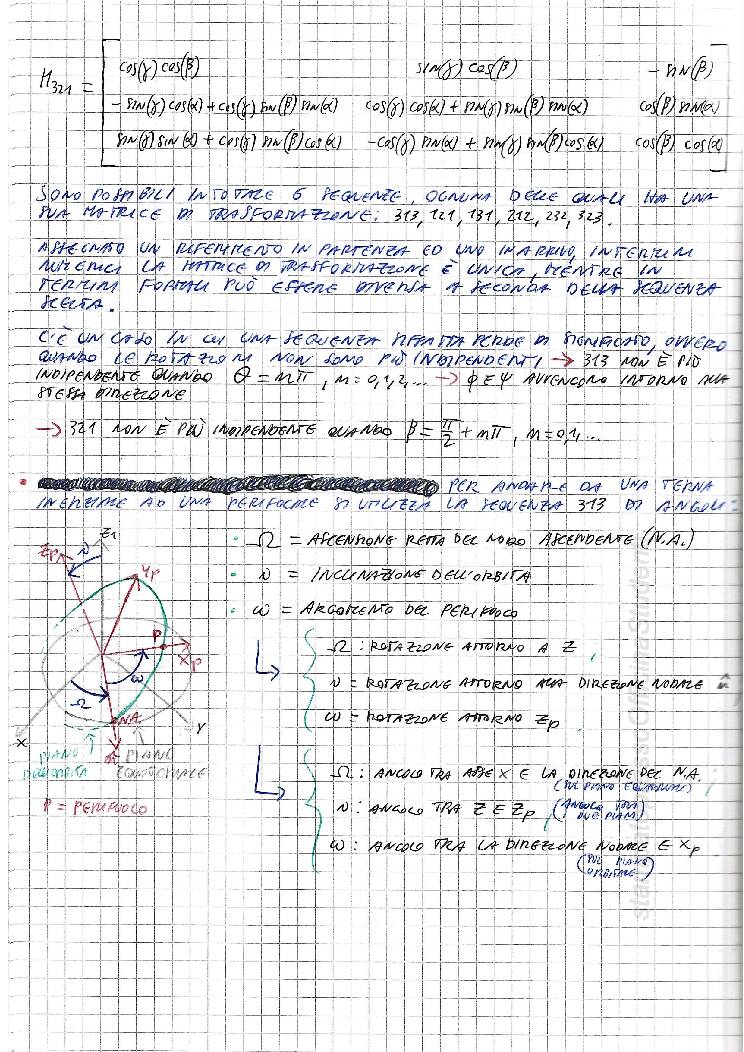 M₃₂₁ =
cos(γ) cos(β) sin(γ) cos(β) - sin(β)
- sin(γ) cos(α) + cos(γ) sin(β) sin(α) cos(γ) cos(α) + sin(γ) sin(β) sin(α) cos(β) sin(α)
sin(γ) sin(α) + cos(γ) sin(β) cos(α) -cos(γ) sin(α) + sin(γ) sin(β) cos(α) cos(β) cos(α)
SONO POSSIBILI IN TOTALE 6 SEQUENZE, OGNUNA DELLE QUALI HA UNA
SUA MATRICE DI TRASFORMAZIONE: 313, 121, 131, 212, 232, 323.
ASSEGNATO UN RIFERIMENTO IN PARTENZA ED UNO IN ARRIVO, IN TERMINI
NUMERICI LA MATRICE DI TRASFORMAZIONE È UNICA, MENTRE IN
TERMINI FORMALI PUÒ ESSERE DIVERSA A SECONDA DELLA SEQUENZA
SCELTA.
C'È UN CASO IN CUI UNA SEQUENZA SIFFATTA PERDE DI SIGNIFICATO, OVVERO
QUANDO LE ROTAZIONI NON SONO PIÙ INDIPENDENTI → 313 NON È PIÙ
INDIPENDENTE QUANDO θ = nπ, n = 0,1,2,... → φ E ψ AVVENGONO INTORNO ALLA
STESSA DIREZIONE
→ 321 NON È PIÙ INDIPENDENTE QUANDO β = π/2 + nπ, n = 0,1,...
• PER ANDARE DA UNA TERNA
INERZIALE AD UNA PERIFOCALE SI UTILIZZA LA SEQUENZA 313 DI ANGOLI:
• Ω = ASCENSIONE RETTA DEL NODO ASCENDENTE (N.A.)
• i = INCLINAZIONE DELL'ORBITA
• ω = ARGOMENTO DEL PERIFUOCO
Ω : ROTAZIONE ATTORNO A Z
i = ROTAZIONE ATTORNO ALLA DIREZIONE NODALE n̂
ω = ROTAZIONE ATTORNO Zp
Ω : ANGOLO TRA ASSE X E LA DIREZIONE DEL N.A.
(SUL PIANO EQUATORIALE)
i : ANGOLO TRA Z E Zp (ANGOLO TRA
DUE PIANI)
ω : ANGOLO TRA LA DIREZIONE NODALE E Xp
(SUL PIANO
ORBITALE)
Zp
i
Z
Yp
P
Xp
ω
Ω
N.A.
X
Y
n̂
PIANO
DELL'ORBITA
PIANO
EQUATORIALE
P = PERIFUOCO